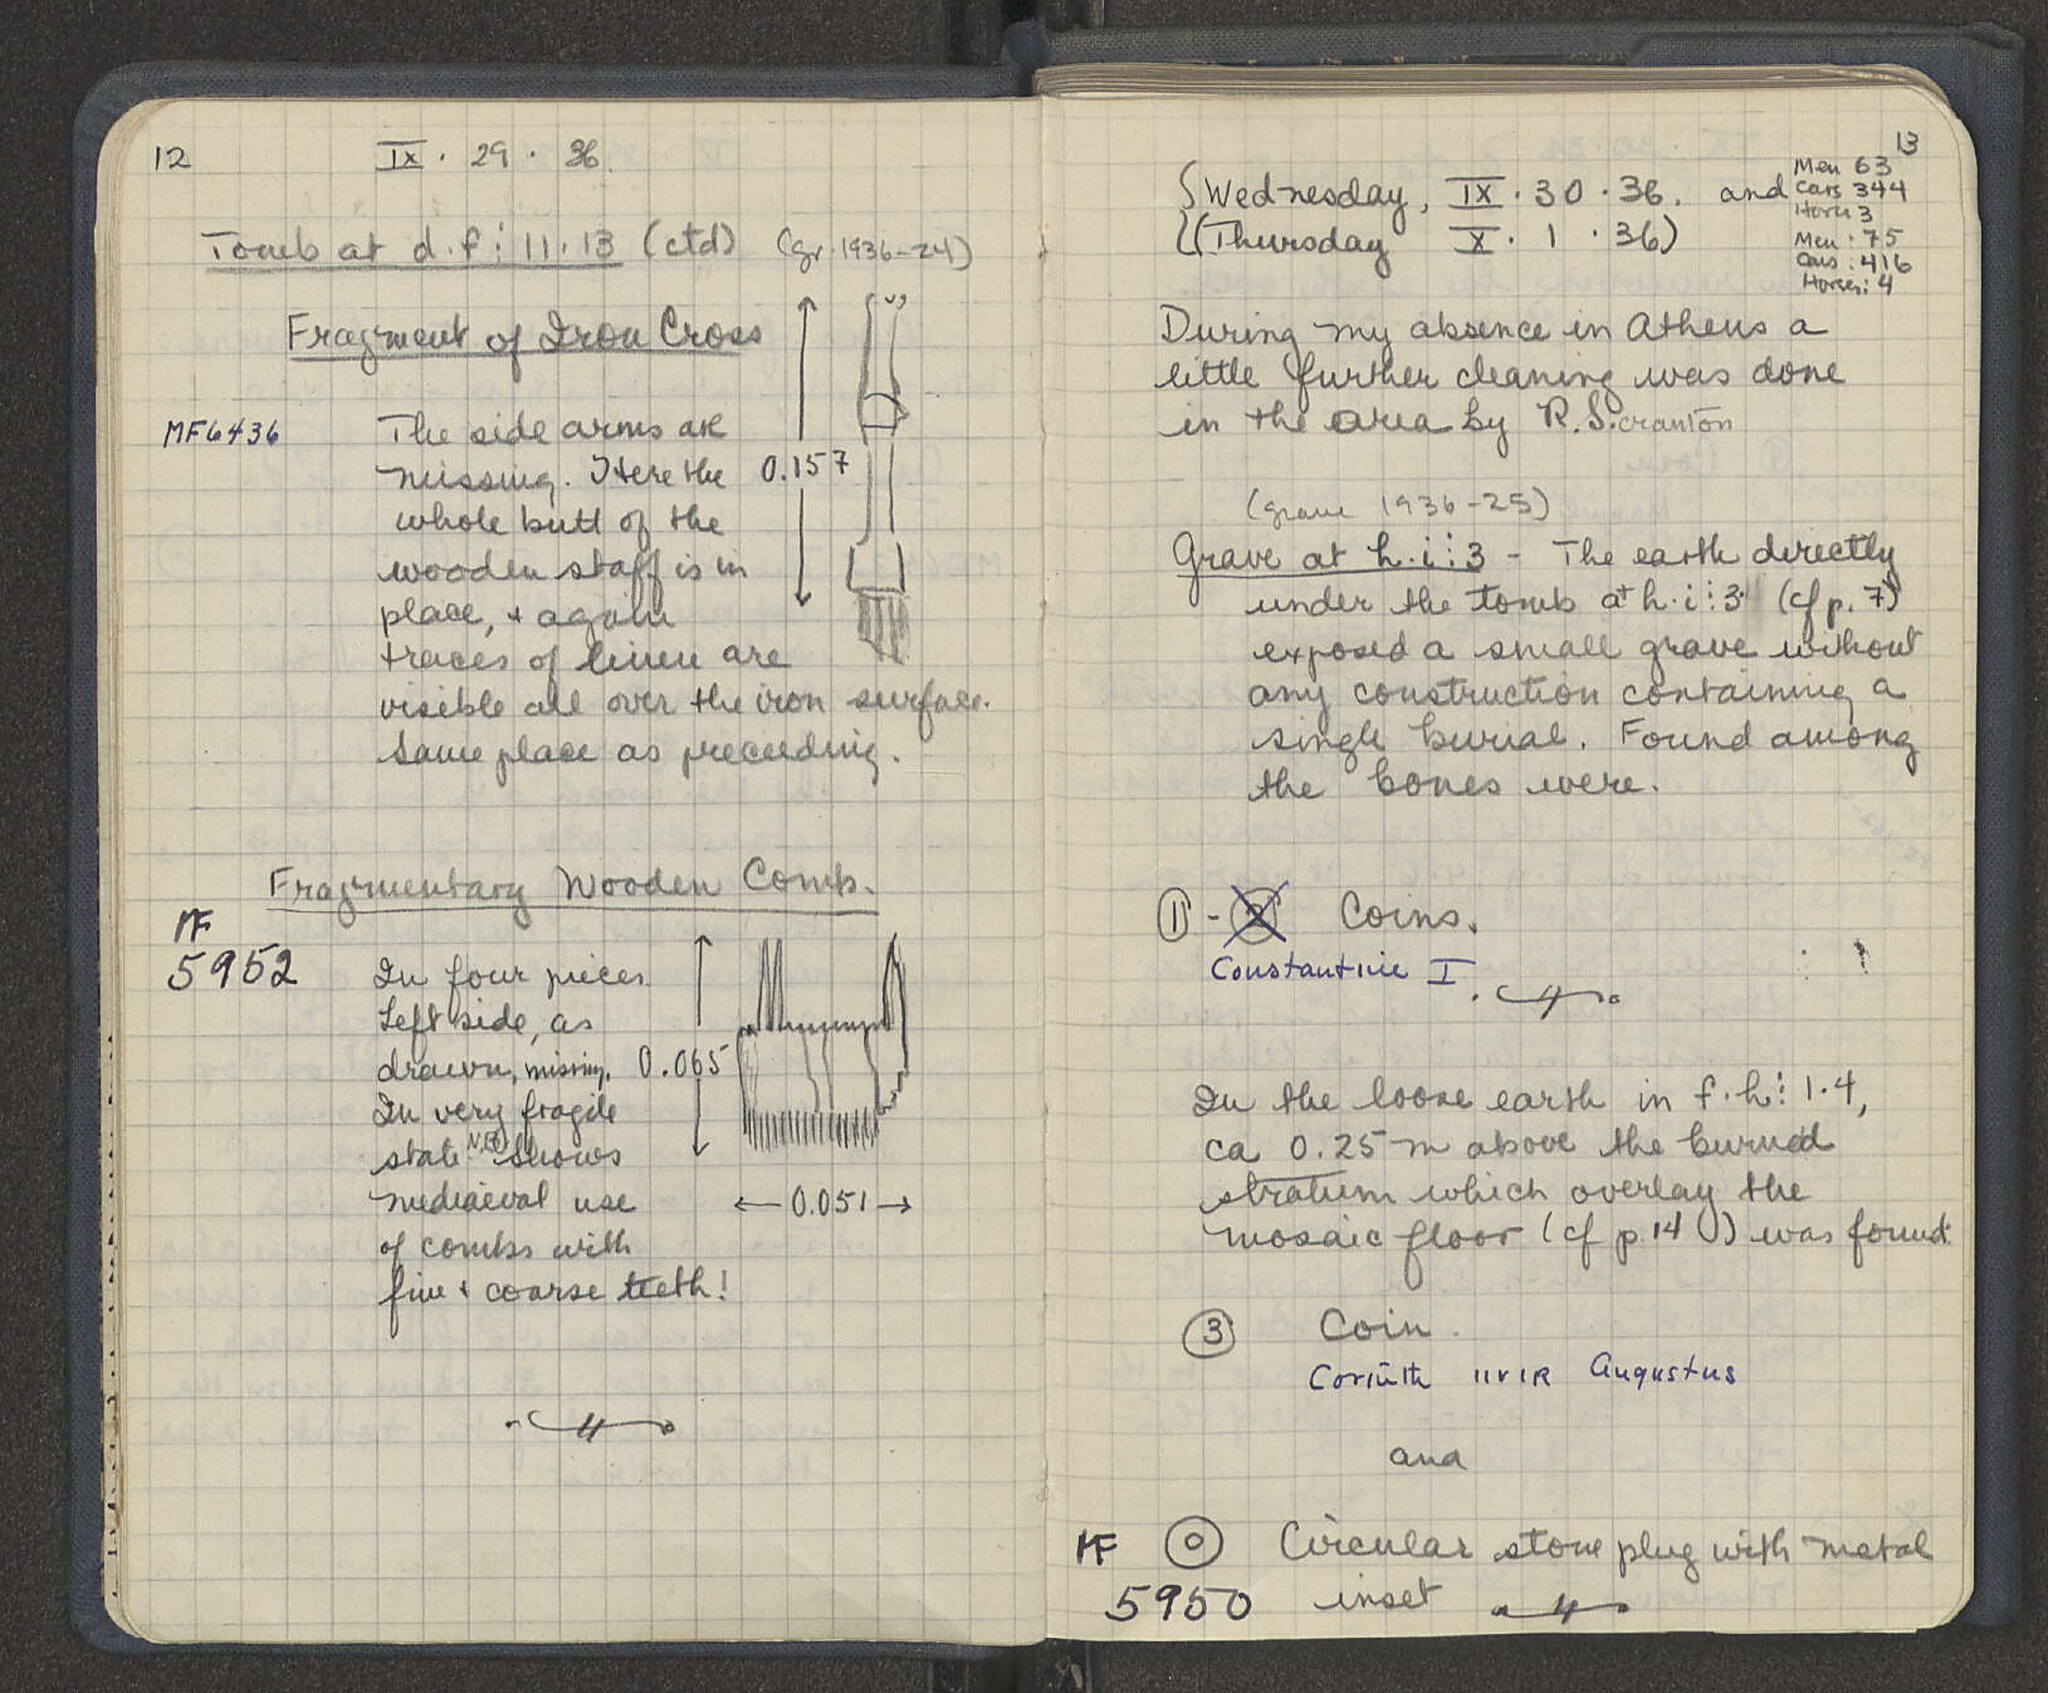 12
IX · 29 · 36.
Tomb at d.f⋮11.13 (ctd) (gr. 1936-24)
Fragment of Iron Cross
MF6436
The side arms are
missing. Here the
whole butt of the
wooden staff is in
place, + again
traces of linen are
visible all over the iron surface.
Same place as preceeding.
0.157
Fragmentary Wooden Comb.
MF
5952
In four pieces.
Left side, as
drawn, missing.
In very fragile
state. N.B. Shows
mediaeval use
of combs with
fine + coarse teeth!
0.065
← 0.051 →
13
Wednesday, IX · 30 · 36. and
(Thursday X · 1 · 36)
Men 63
Cars 344
Horses 3
Men : 75
Cars : 416
Horses : 4
During my absence in Athens a
little further cleaning was done
in the area by R. Scranton
(grave 1936-25)
Grave at h.i⋮3 - The earth directly
under the tomb at h.i⋮3 (cf p. 7)
exposed a small grave without
any construction containing a
single burial. Found among
the bones were.
① - ② Coins.
Constantine I
In the loose earth in f.h⋮1.4,
ca 0.25 m above the burned
stratum which overlay the
mosaic floor (cf p. 14) was found.
③ Coin.
Corinth IIVIR Augustus
and
MF ⓞ Circular stone plug with metal
5950 inset